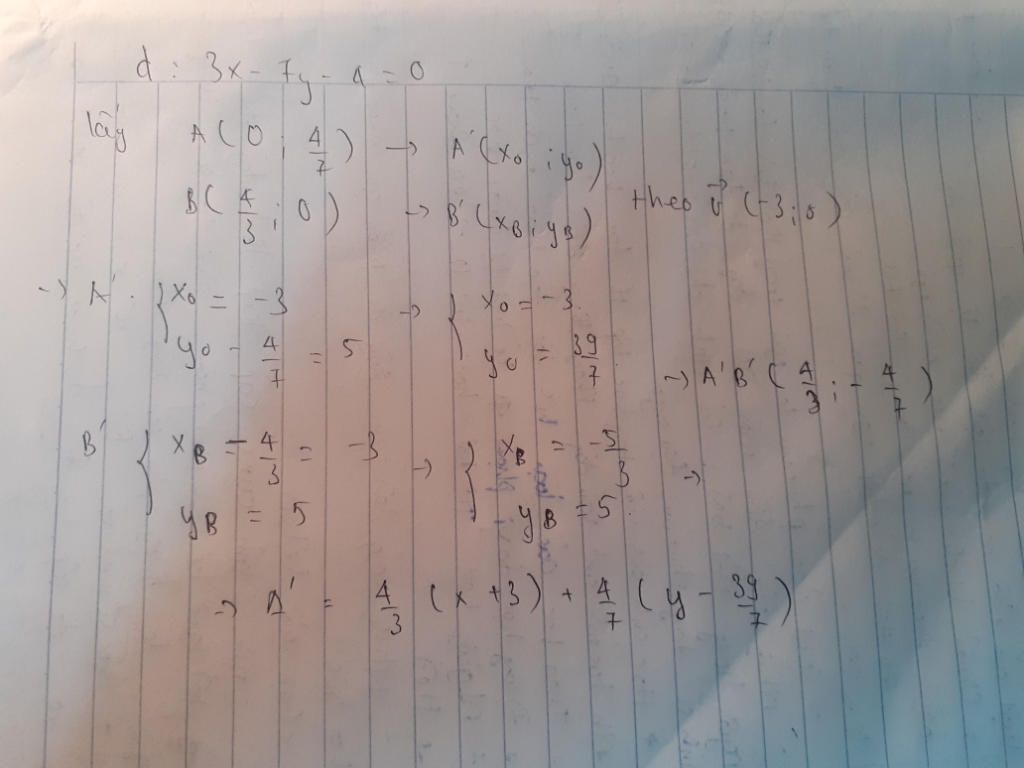 d : 3x - 7y - 4 = 0
lấy A ( 0 ; 4/7 ) → A' ( x₀ ; y₀ )
B ( 4/3 ; 0 ) → B' ( x_B ; y_B ) theo v⃗ (-3 ; 5)
→ A' . { x₀ = -3 → { x₀ = -3
y₀ - 4/7 = 5 y₀ = 39/7
→ A'B' ( 4/3 ; - 4/7 )
B' { x_B - 4/3 = -3 → { x_B = -5/3 →
y_B = 5 y_B = 5
→ Δ' = 4/3 ( x + 3 ) + 4/7 ( y - 39/7 )